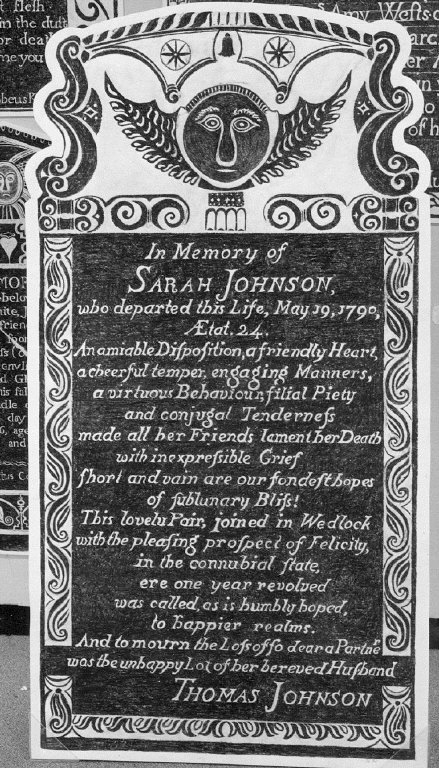 flesh
in the dust
or dea
me you
beus
Amy West
arc
er A
in y
d
of h
MOR
below
ite, I
frien
foor
day
6, age
and
tus Co
In Memory of
SARAH JOHNSON,
who departed this Life, May 19, 1790,
Ætat. 24.
An amiable Diſpoſition, a friendly Heart,
a cheerful temper, engaging Manners,
a virtuous Behaviour, filial Piety
and conjugal Tenderneſs
made all her Friends lament her Death
with inexpreſsible Grief
ſhort and vain are our fondeſt hopes
of ſublunary Bliſs!
This lovely Pair, joined in Wedlock
with the pleaſing proſpect of Felicity,
in the connubial ſtate,
ere one year revolved
was called, as is humbly hoped,
to happier realms.
And to mourn the Loſs of ſo dear a Partner
was the unhappy Lot of her bereved Huſband
THOMAS JOHNSON